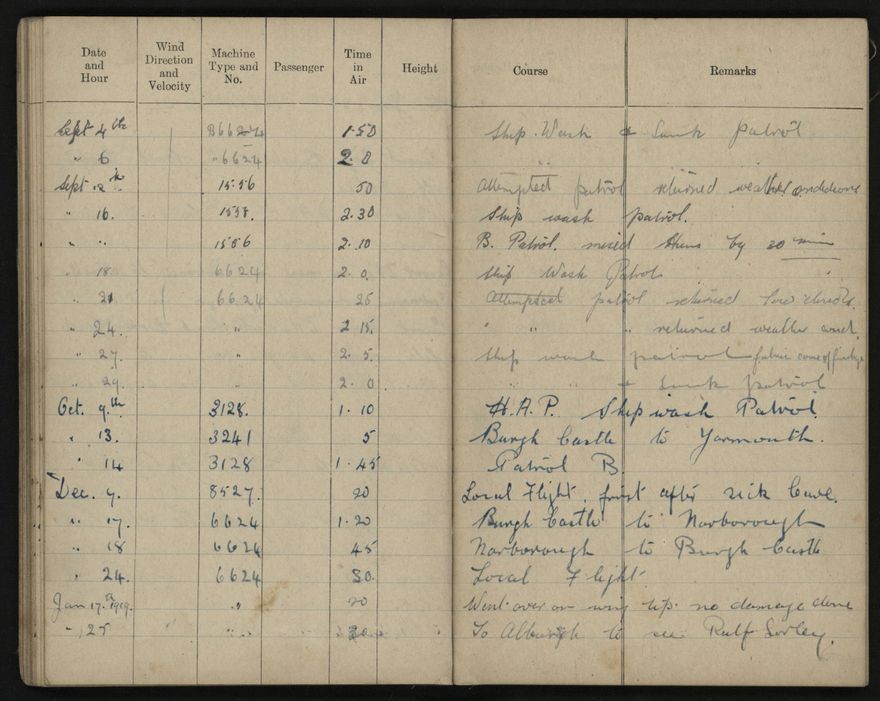 Date and Hour Wind Direction and Velocity Machine Type and No. Passenger Time in Air Height Course Remarks
Sept 4th B6624 1.50 Ship Wash & Sunk patrol
" 6 "6624 2.0 " "
Sept 12th 1556 50 Attempted patrol returned weather
" 16. 1538. 2.30 Ship wash patrol.
" " 1556 2.10 B. Patrol. missed Huns by 20 min
" 18 6624 2.0. Ship Wash Patrol
" 21 6624 25 Attempted patrol returned low clouds.
" 24. " 2 15. " " " returned weather
" 27. " 2.5. Ship wash patrol fabric come off
" 29. " 2.0 " " & Sunk patrol.
Oct. 9.th 3128. 1.10 H.A.P. Ship wash Patrol.
" 13. 3241 5 Burgh Castle to Yarmouth.
" 14 3128 1.45 Patrol B.
Dec. 9. 8527. 20 Local Flight. first after sick leave.
" 17. 6624 1.20 Burgh Castle to Narborough
" 18 6624 45 Narborough to Burgh Castle
" 24. 6624 50. Local Flight
Jan 17.th 1919. " 20 Went over on wing tip. no damage done
" 25 " 20 To to see Ralf Sorley.